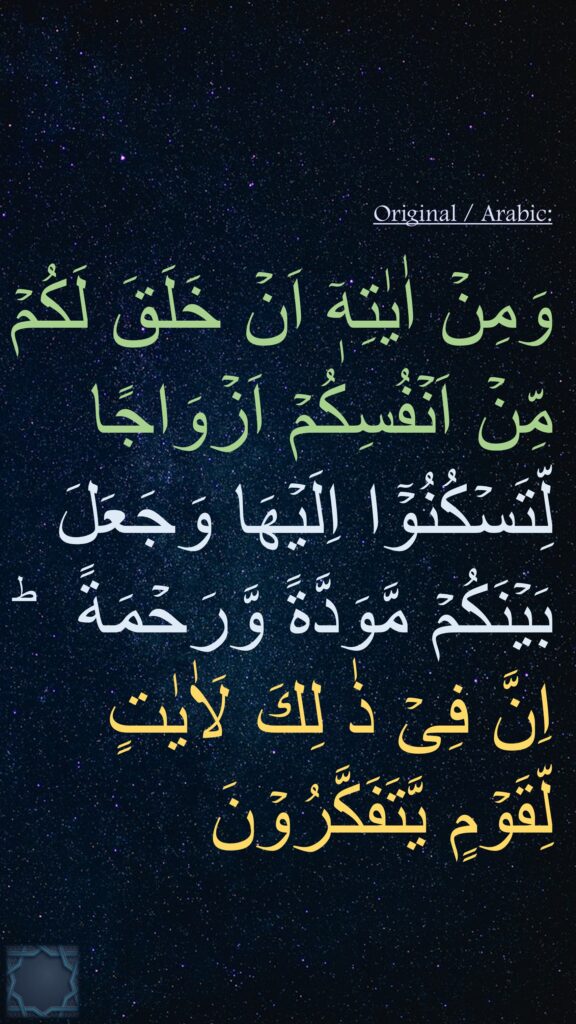 Original / Arabic:
وَمِنۡ اٰيٰتِهٖۤ اَنۡ خَلَقَ لَكُمۡ
مِّنۡ اَنۡفُسِكُمۡ اَزۡوَاجًا
لِّتَسۡكُنُوۡۤا اِلَيۡهَا وَجَعَلَ
بَيۡنَكُمۡ مَّوَدَّةً وَّرَحۡمَةً  ؕ
اِنَّ فِىۡ ذٰ لِكَ لَاٰيٰتٍ
لِّقَوۡمٍ يَّتَفَكَّرُوۡنَ